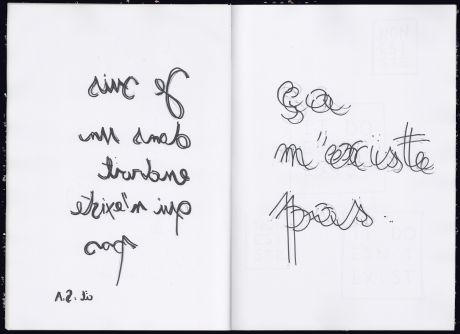 Je suis
dans un
endroit
qui n'existe
pas
cit. S.A
Ça
n'existe
pas..